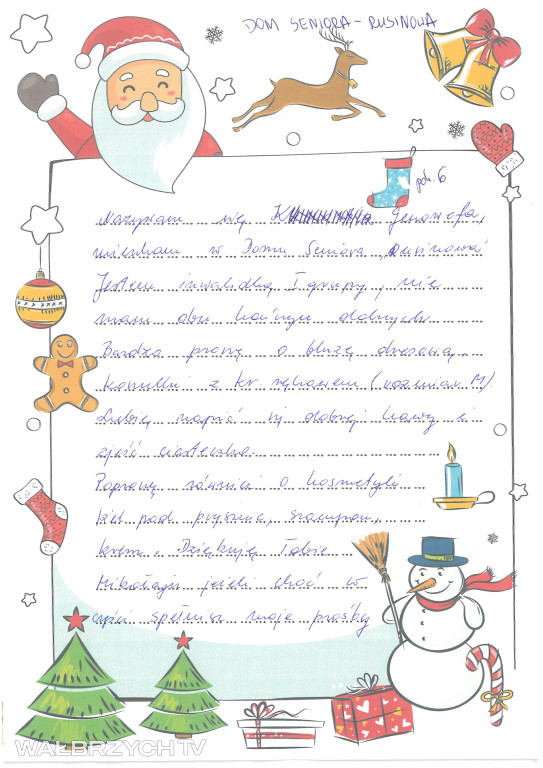 DOM SENIORA - RUSINOWA
pok. 6
Nazywam się K Genowefa,
mieszkam w Domu Seniora „Rusinowa”
Jestem inwalidką I grupy, nie
mam obu kończyn dolnych.
Bardzo proszę o bluzę dresową,
koszulkę z kr. rękawem (rozmiar M).
Lubię napić się dobrej kawy i
zjeść ciasteczko.
Poproszę również o kosmetyki
żel pod prysznic, szampon,
krem. Dziękuję Tobie
Mikołaju jeżeli choć w
części spełnisz moje prośby
WAŁBRZYCH TV